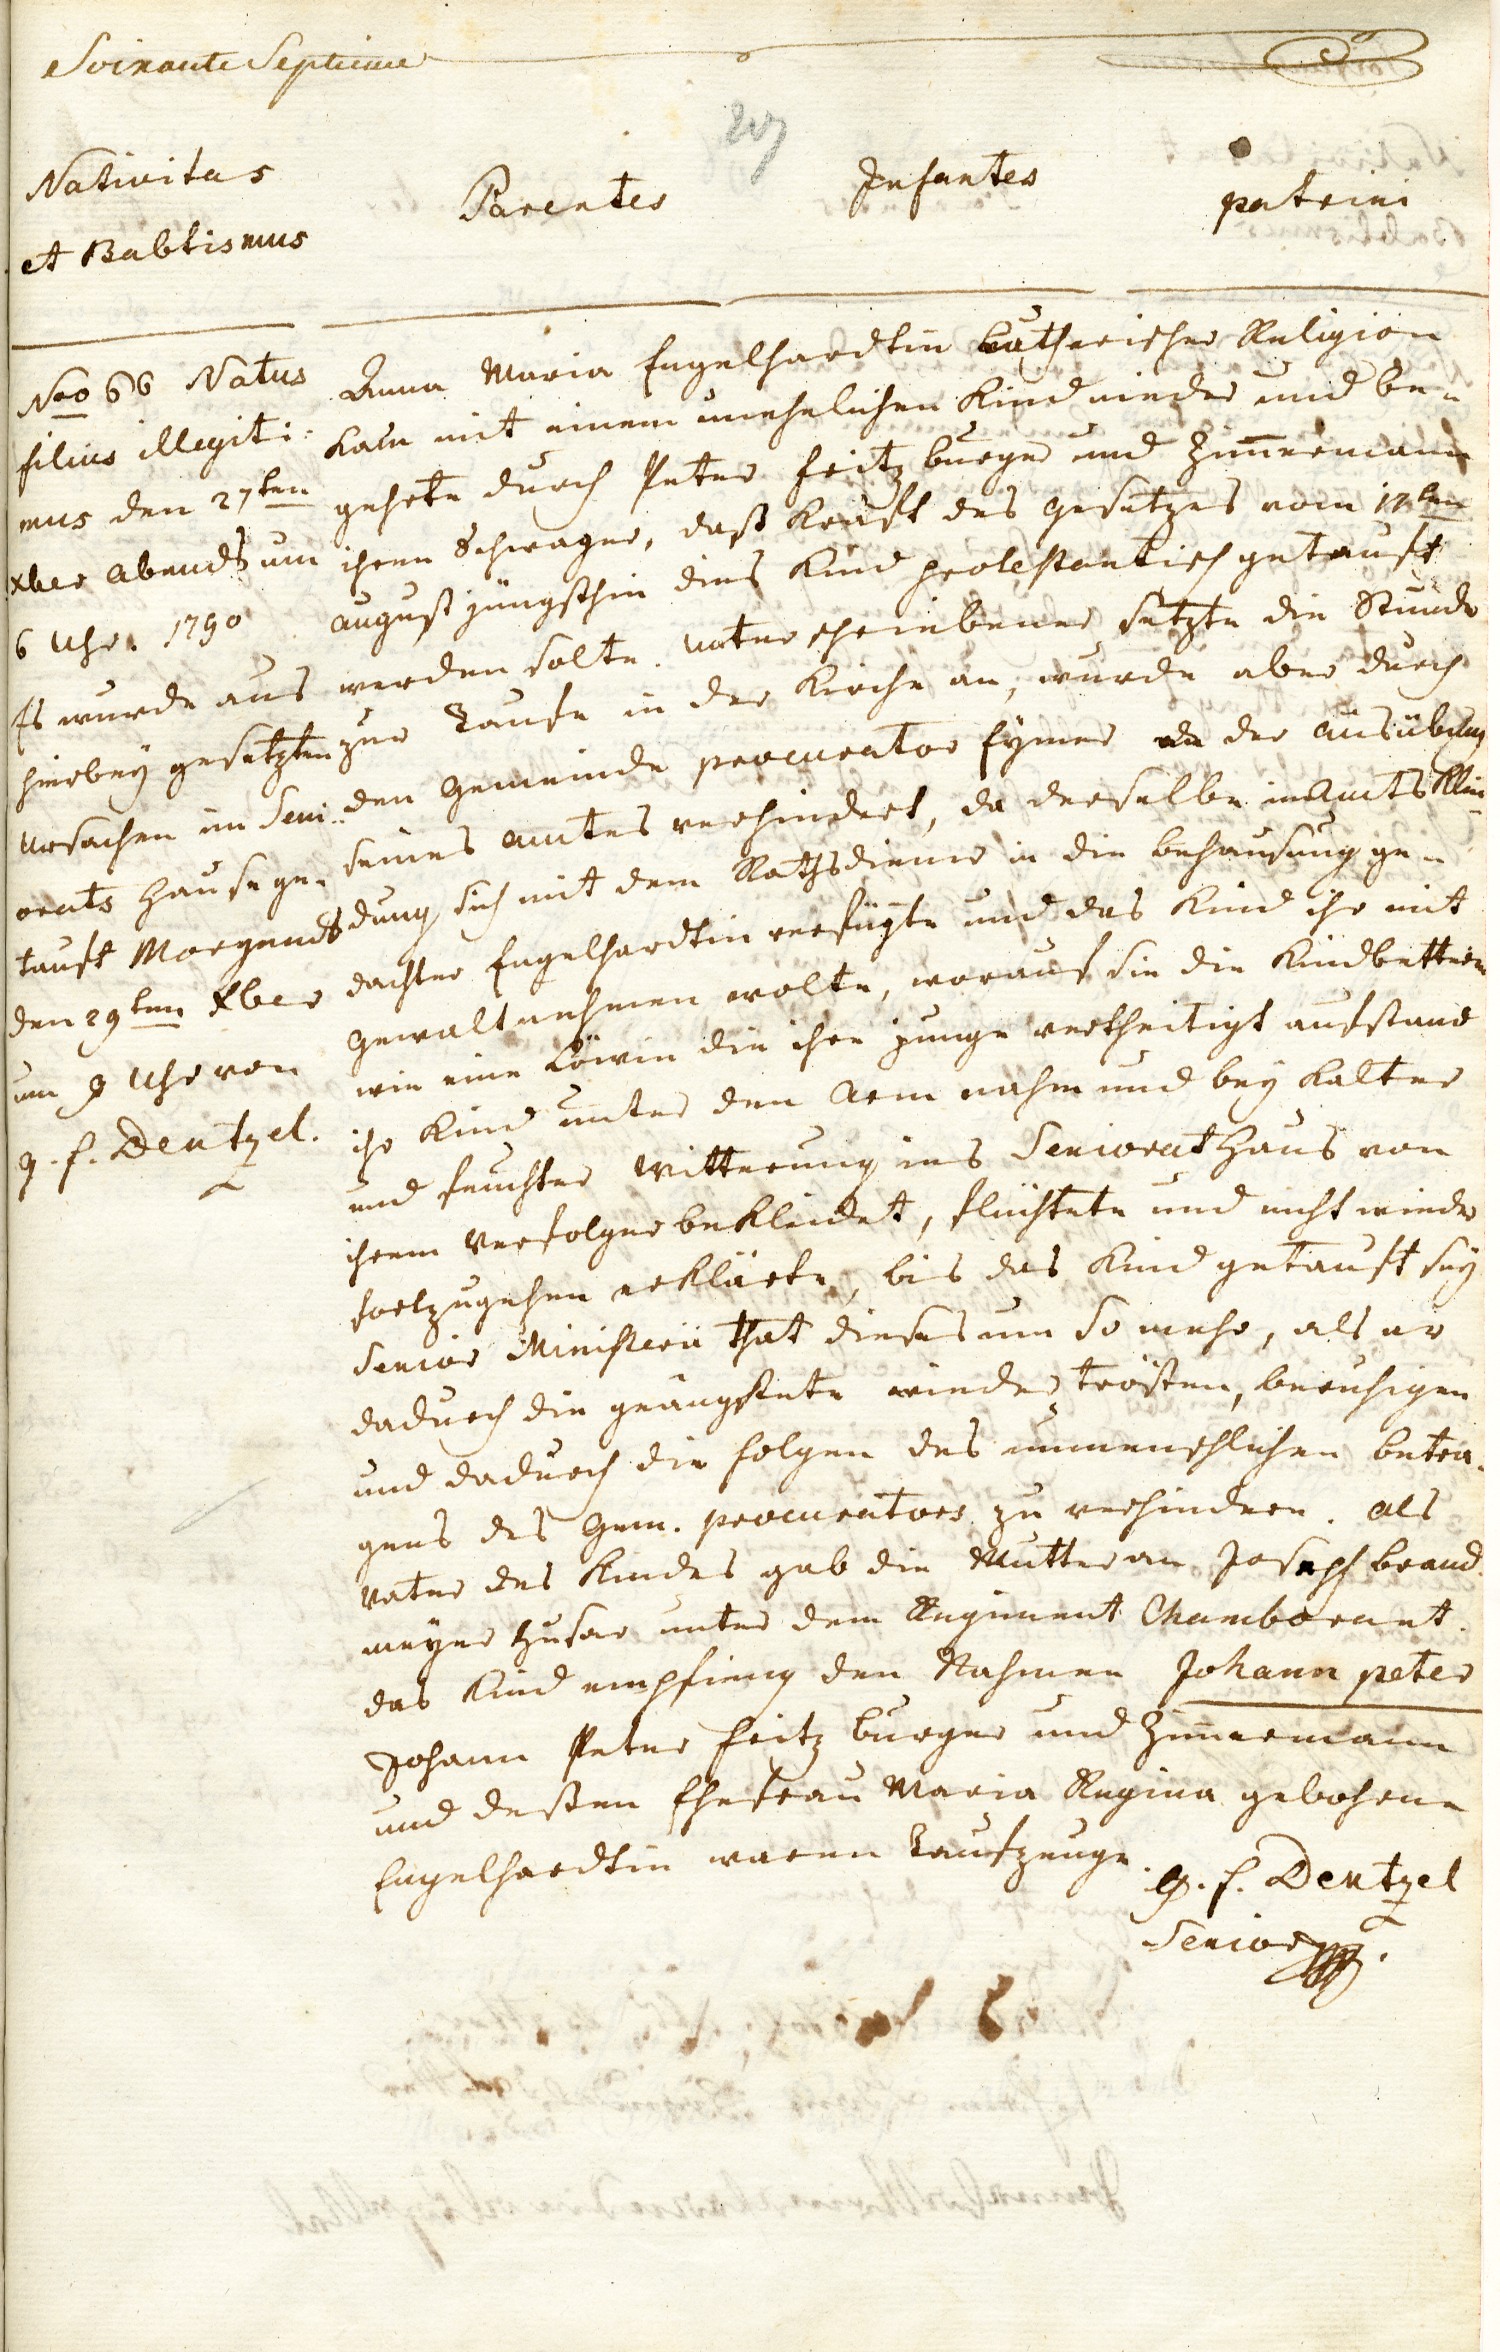 Soixante Septieme
207
Nativitas
et Babtismus
Parentes
Infantes
patrini
Nro 66 Natus
filius illegiti-
mus den 27ten
Xber Abends um
6 Uhr. 1790
Es wurde aus
hierbey gesetzten
Ursachen im Seni-
orats Hause ge-
tauft Morgends
den 29ten Xber
um 9 Uhr von
g. f. Dentzel.
Anna Maria Engelhardtin Lutherischer Religion
kam mit einem unehelichen Kind nieder und be-
gehrte durch Peter Fritz burger und Zimmermann
ihren Schwager, daß Kraft des Gesetzes vom 17ten
August jüngsthin dies Kind protestantisch getauft
werden solte. Unterschriebener setzte die Stunde
zur Taufe in der Kirche an, wurde aber durch
den Gemeinde procurator Eymer an der Ausübung
seines Amtes verhindert, da derselbe in Amts Klei-
dung sich mit dem Rathsdiener in die behausung ge-
dachter Engelhardtin verfügte und das Kind ihr mit
Gewalt nehmen wolte, worauf sie die Kindbetterin
wie eine Löwin die ihre junge vertheitigt aufstand
ihr Kind unter den Arm nahm und bey kalter
und feuchter Witterung ins Seniorat Haus von
ihrem Verfolger bekleidet, flüchtete und nicht wieder
fortzugehen erklärte, bis das Kind getauft sey
Senior Ministerii that dieses um so mehr, als er
dadurch die geängstete wieder trösten, beruhigen
und dadurch die folgen des unmenschlichen betra-
gens des Gem. procurators zu verhindern. Als
Vater des Kindes gab die Mutter an Joseph brand
meyer Husar unter dem Regiment Chamborant.
das Kind empfieng den Nahmen Johann peter
Johann Peter Fritz burger und Zimmermann
und dessen Ehefrau Maria Regina gebohrene
Engelhardtin waren Taufzeuge.
g. f. Dentzel
Senior